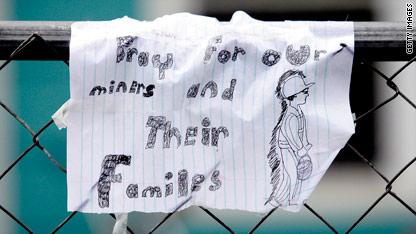 Pray For our
miners and
Their
Familes
GETTY IMAGES